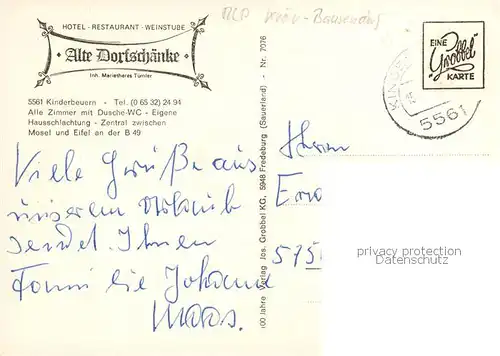 HOTEL - RESTAURANT - WEINSTUBE
· Alte Dorfschänke ·
Inh. Marietheres Türnler
5561 Kinderbeuern - Tel. (0 65 32) 24 94
Alle Zimmer mit Dusche-WC - Eigene
Hausschlachtung - Zentral zwischen
Mosel und Eifel an der B 49
Viele Grüße aus
unserem Urlaub
sendet Ihnen
Familie Johann
Maas.
100 Jahre Verlag Jos. Grobbel KG, 5948 Fredeburg (Sauerland) - Nr. 7076
EINE
Grobbel
KARTE
5561
Herrn
575
privacy protection
Datenschutz